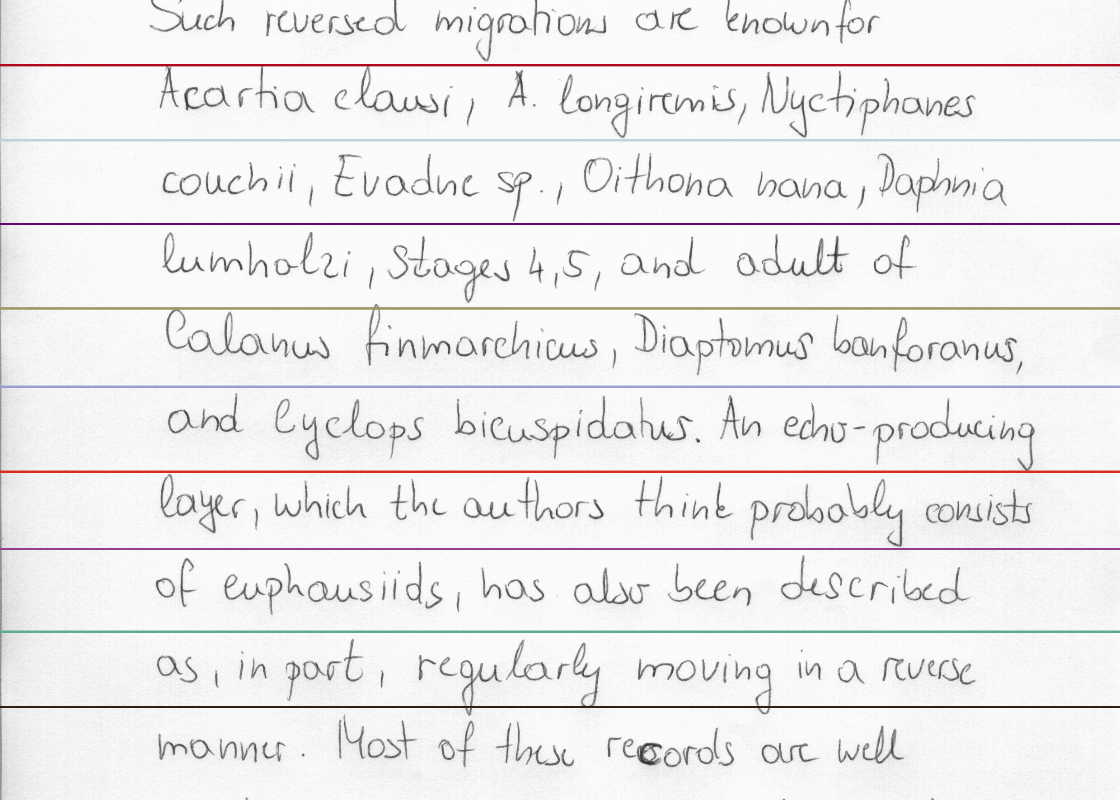 Such reversed migrations are known for
Acartia clausi, A. longiremis, Nyctiphanes
couchii, Evadne sp., Oithona nana, Daphnia
lumholzi, Stages 4,5, and adult of
Calanus finmarchicus, Diaptomus banforanus,
and Cyclops bicuspidatus. An echo-producing
layer, which the authors think probably consists
of euphausiids, has also been described
as, in part, regularly moving in a reverse
manner. Most of these records are well